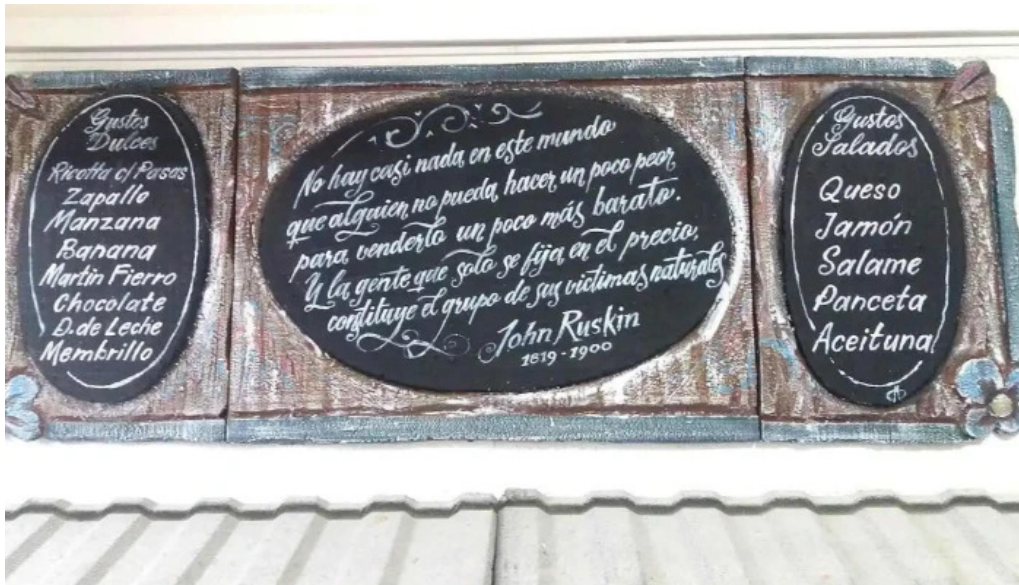 Gustos
Dulces
Ricotta c/ Pasas
Zapallo
Manzana
Banana
Martín Fierro
Chocolate
D. de Leche
Membrillo
No hay casi nada en este mundo
que alguien no pueda hacer un poco peor
para venderlo un poco más barato.
Y la gente que solo se fija en el precio,
constituye el grupo de sus victimas naturales
John Ruskin
1819-1900
Gustos
Salados
Queso
Jamón
Salame
Panceta
Aceituna